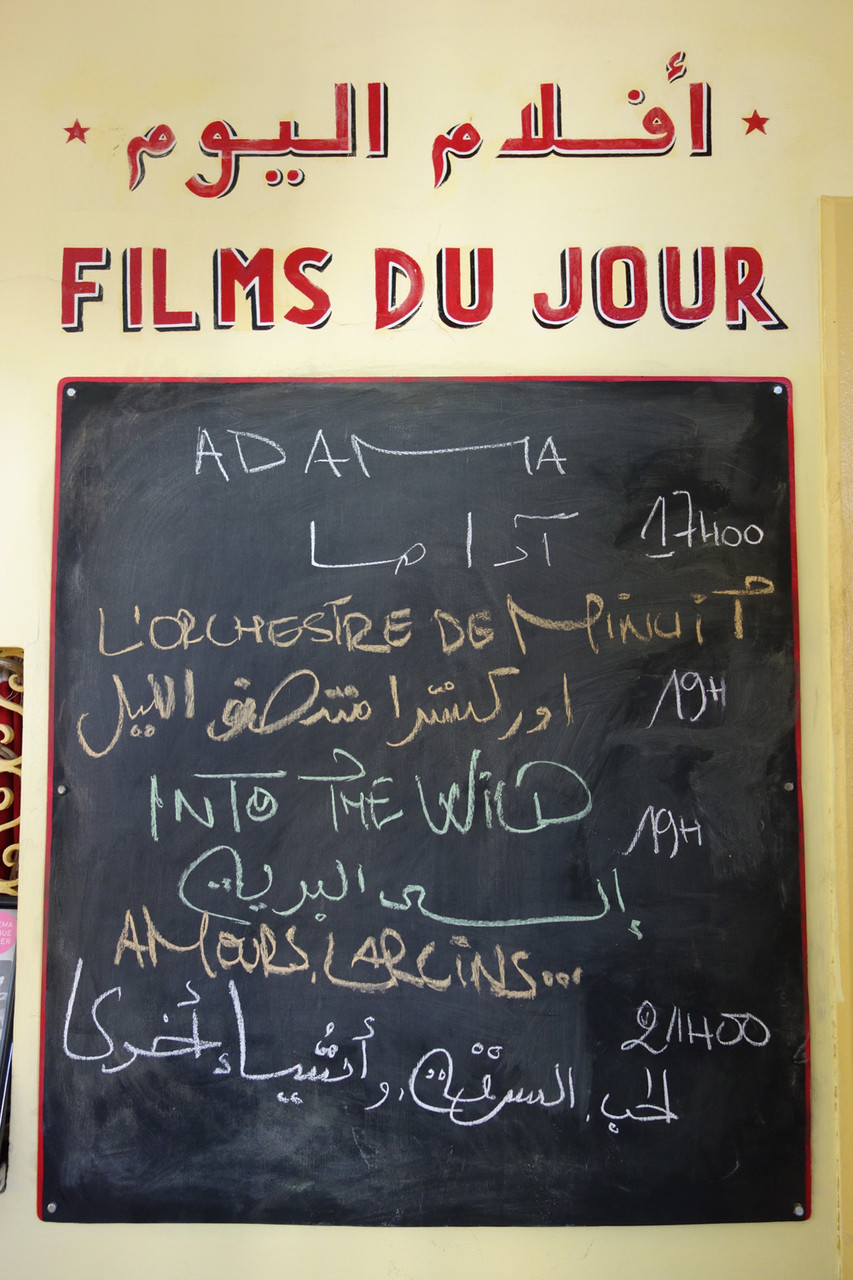 أفلام اليوم
FILMS DU JOUR
ADAMA
آداما
17H00
L'ORCHESTRE DE MINUIT
اوركسترا منتصف الليل
19H
INTO THE WILD
19H
إلى البرية
AMOURS, LARCINS...
21H00
الحب، السرقة، و أشياء أخرى